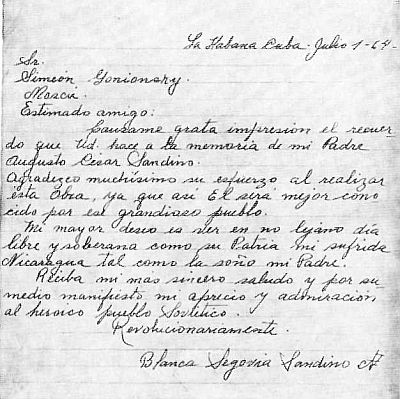 La Habana Cuba. Julio 1-64-
Sr.
Simeón Gonionsky.
Moscú
Estimado amigo:
Causame grata impresión el recuer
do que Ud. hace a la memoria de mi Padre
Augusto Cesar Sandino.
Agradezco muchísimo su esfuerzo al realizar
ésta Obra, ya que así El será mejor cono
cido por ese grandioso pueblo.
Mi mayor deseo es ver en no lejano día
libre y soberana como su Patria mi sufrida
Nicaragua tal como la soño mi Padre.
Reciba mi mas sincero saludo y por su
medio manifiesto mi aprecio y admiracion
al heroico pueblo Sovietico.
Revolucionariamente.
Blanca Segovia Sandino A